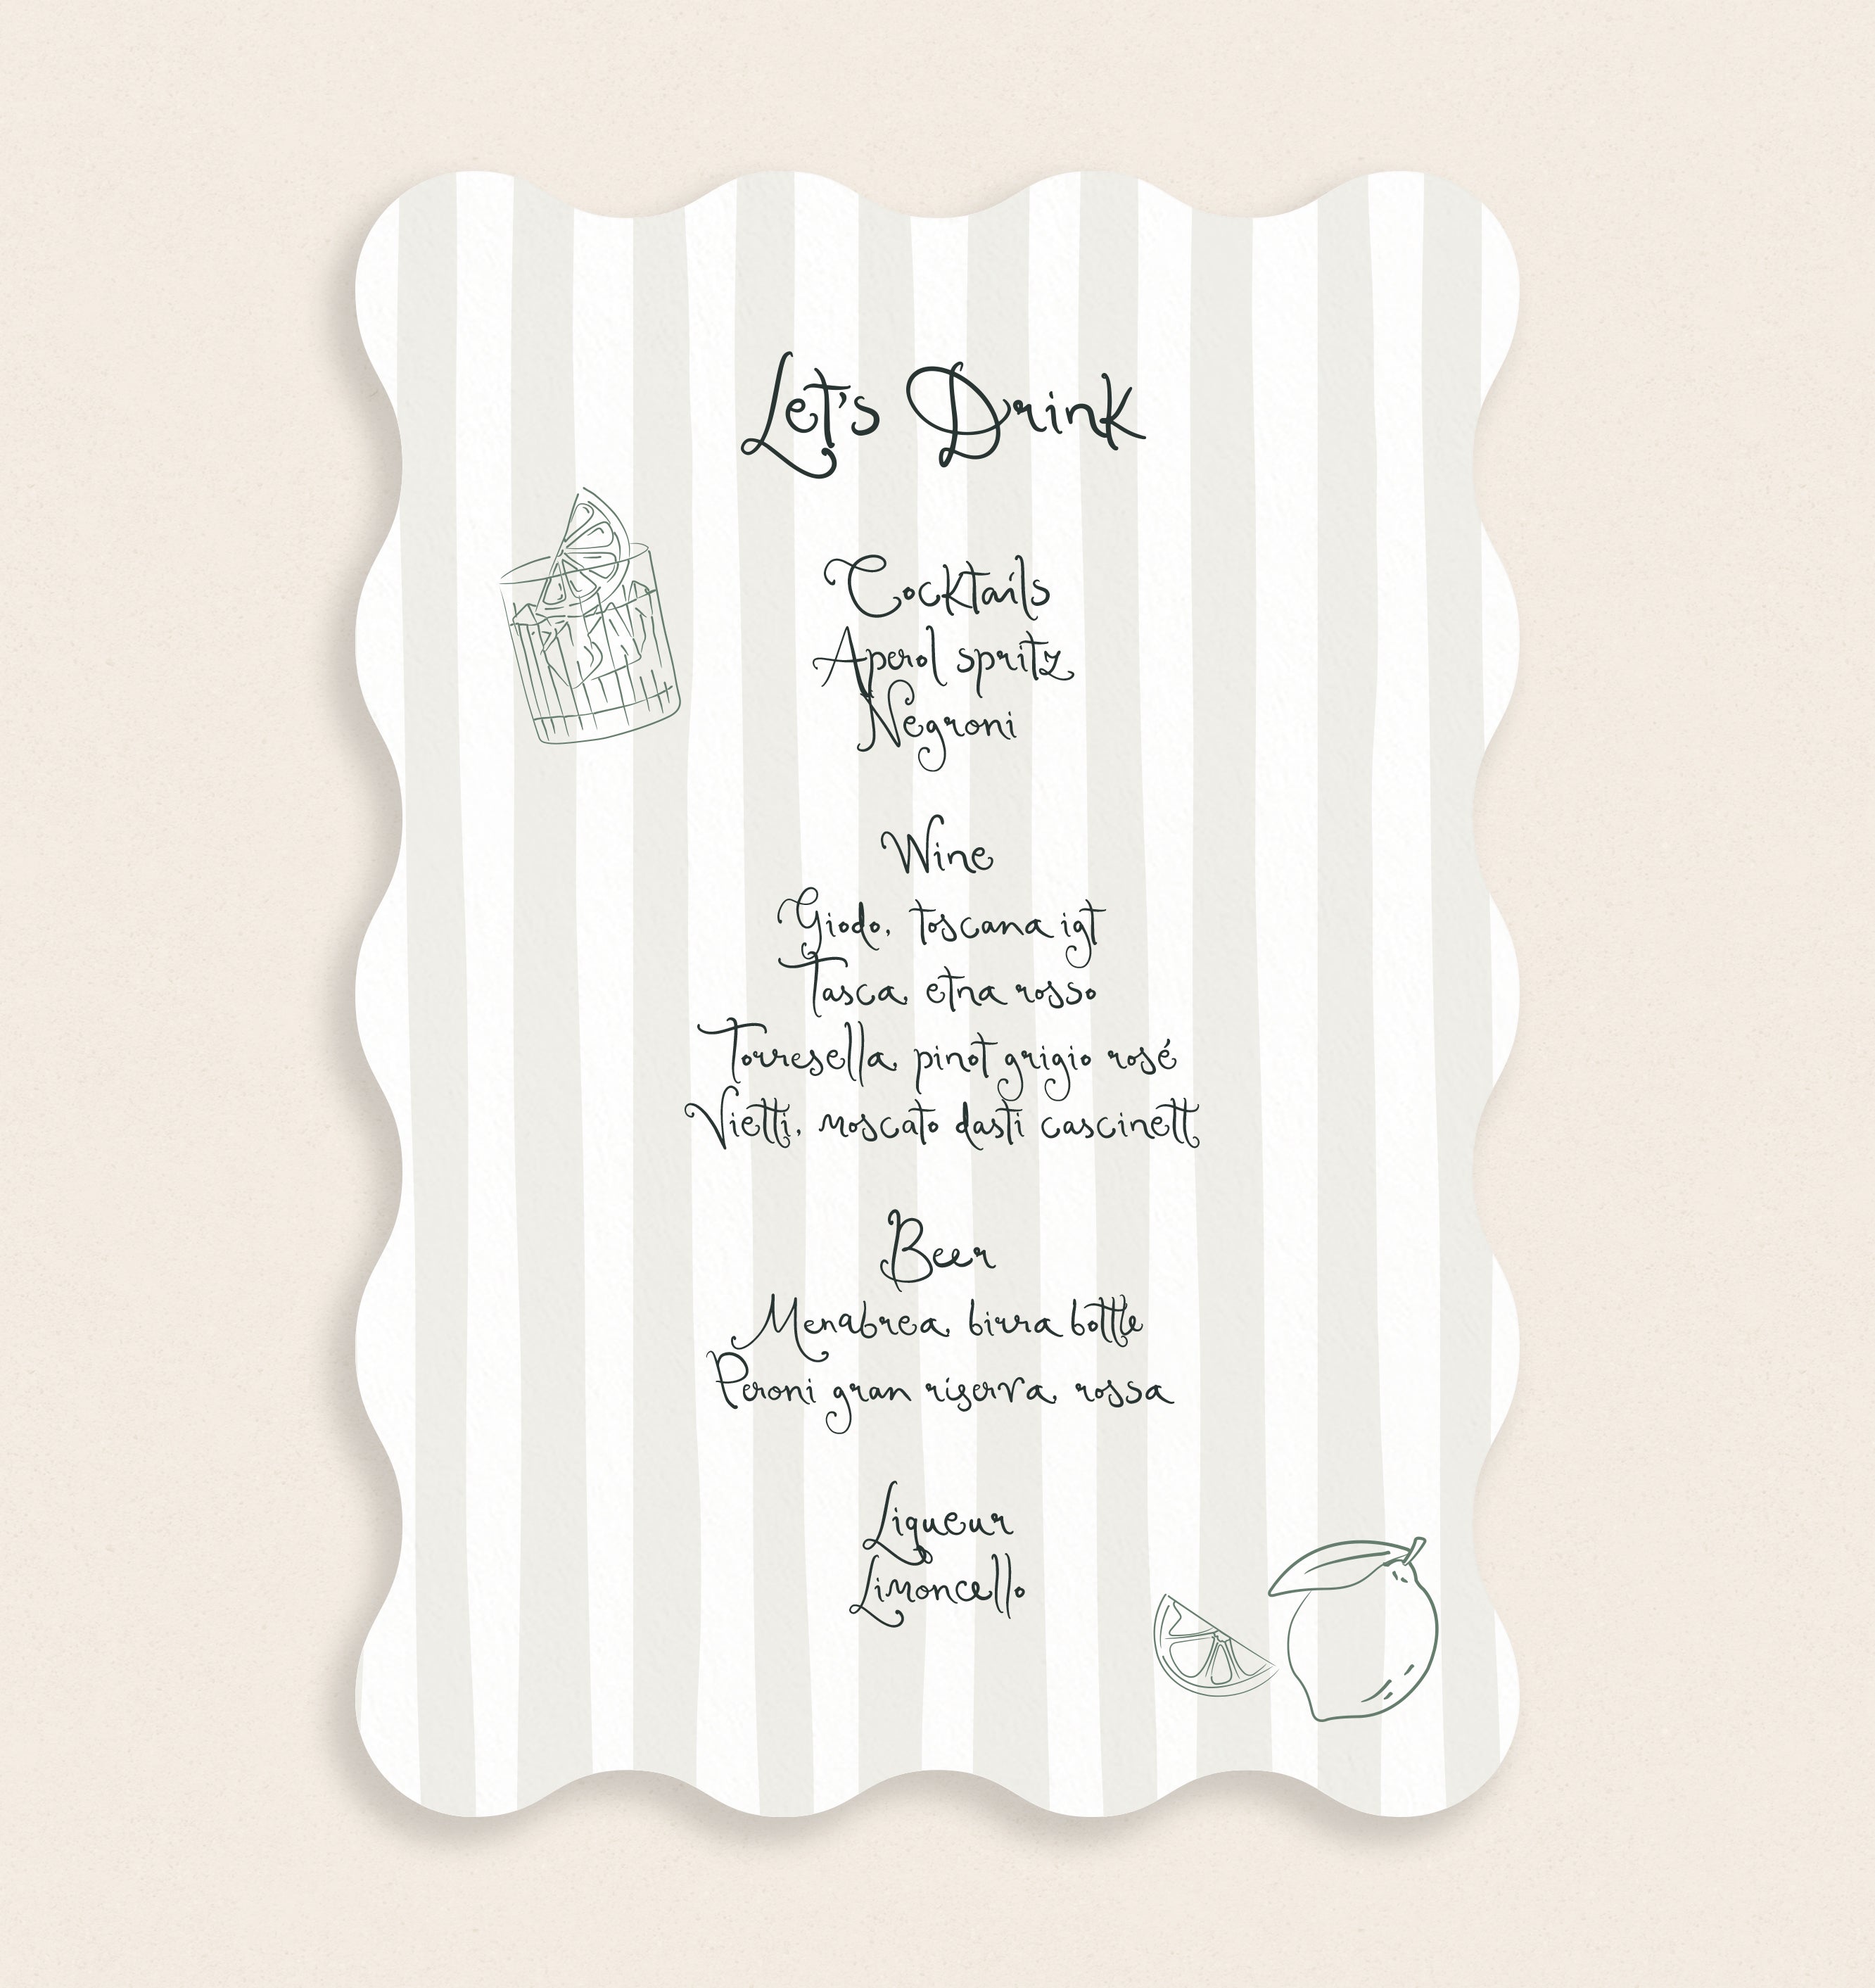 Let's Drink
Cocktails
Aperol spritz
Negroni
Wine
Giodo, toscana igt
Tasca, etna rosso
Torresella, pinot grigio rosé
Vietti, moscato dasti cascinett
Beer
Menabrea, birra bottle
Peroni gran riserva, rossa
Liqueur
Limoncello